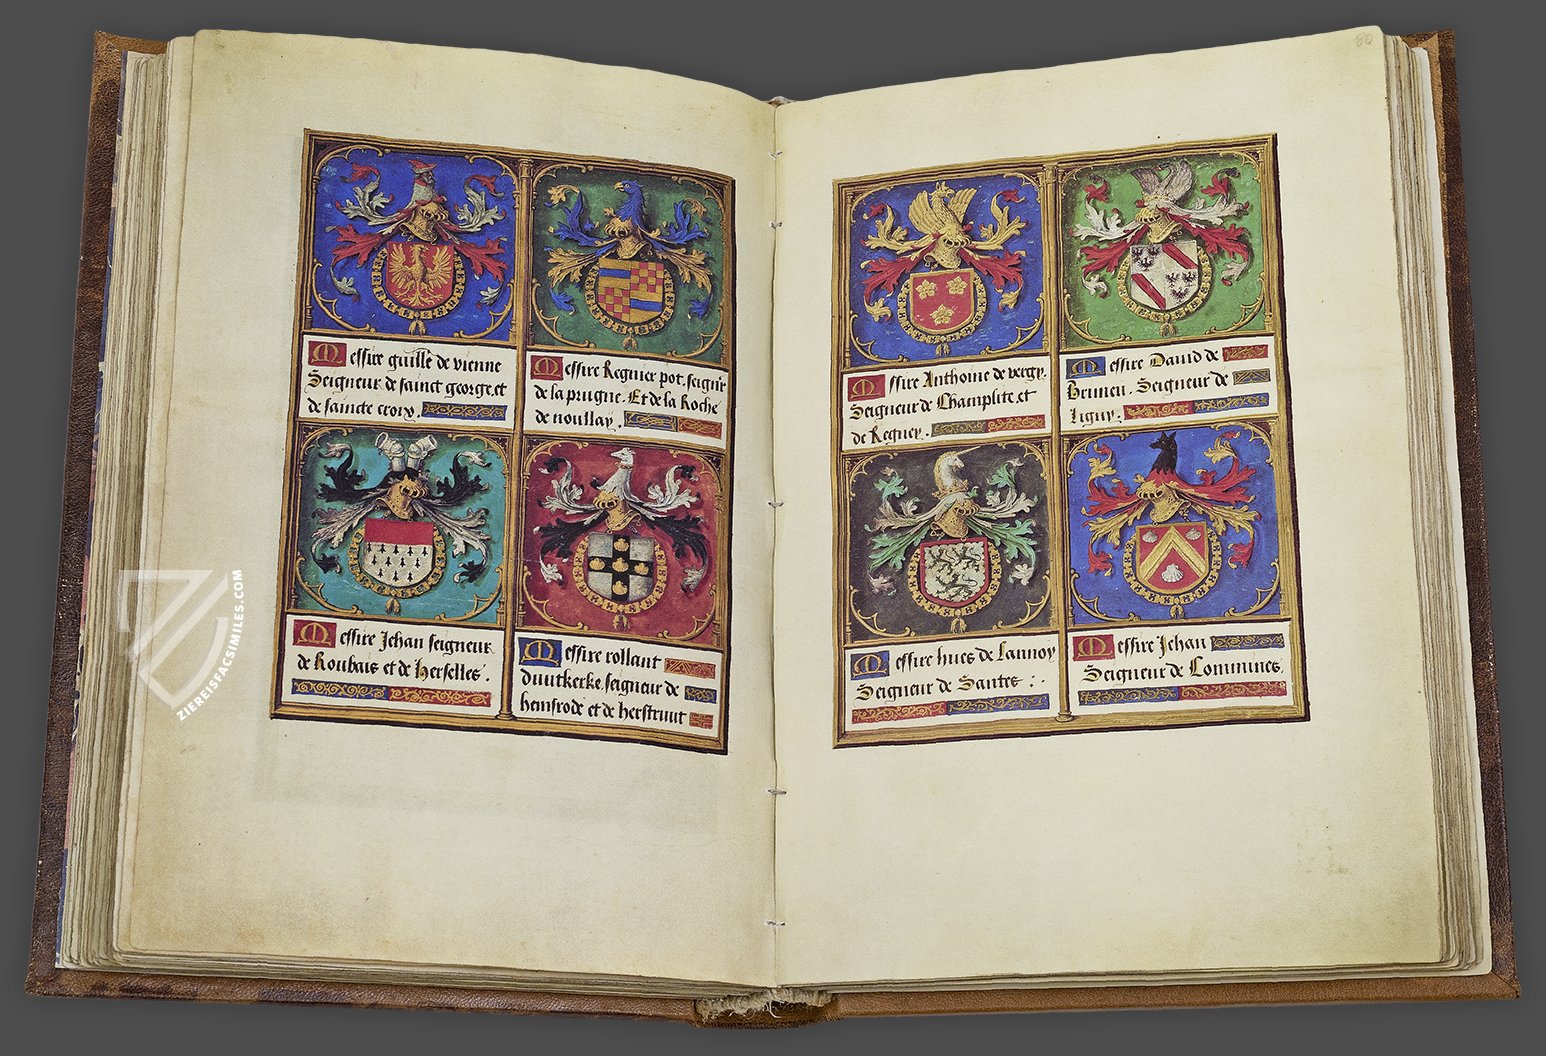 Messire guille de vienne
Seigneur de sainct george et
de saincte croix.
Messire Regnier pot, seignʳ
de la prugne. Et de la Roche
de noullay.
Messire Jehan seigneur
de Roubais et de Herselles.
Messire rollant
Duutkerke, seigneur de
hemsrode et de herstruut
Messire Anthoine de vergy.
Seigneur de Champlite et
de Regney.
Messire Dauid de
Brimeu. Seigneur de
Ligny.
Messire hues de Lannoy
Seigneur de Santes :.
Messire Jehan
Seigneur de Commines.
80
ZIEREISFACSIMILES.COM